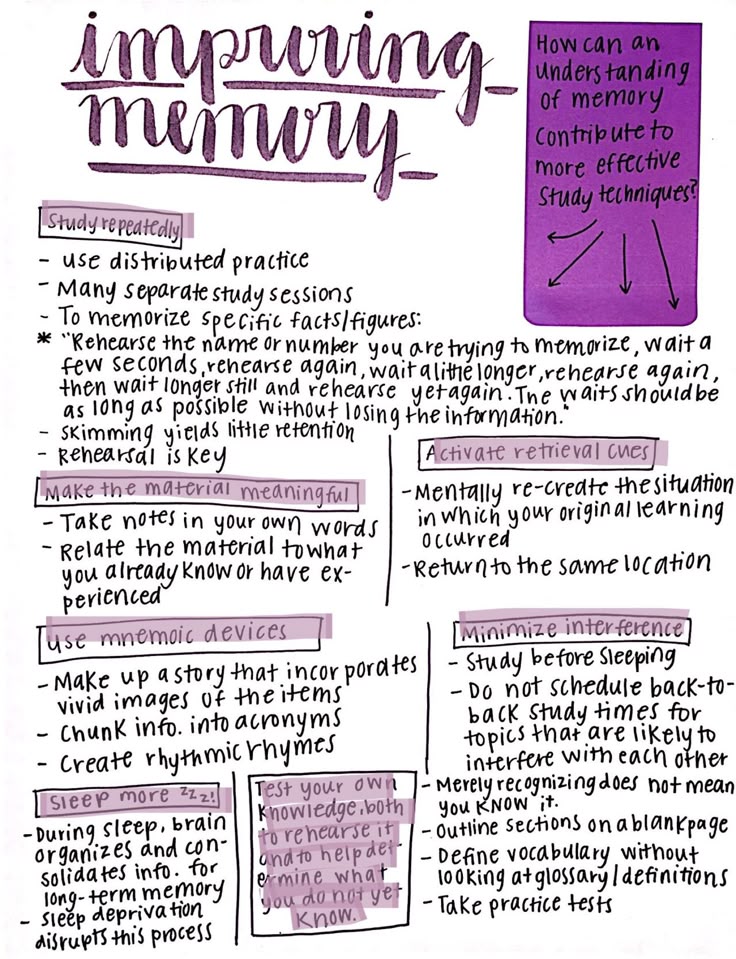 improving
memory
How can an
understanding
of memory
contribute to
more effective
study techniques?
Study repeatedly
- use distributed practice
- Many separate study sessions
- To memorize specific facts/figures:
* "Rehearse the name or number you are trying to memorize, wait a
few seconds, rehearse again, wait a little longer, rehearse again,
then wait longer still and rehearse yet again. The waits should be
as long as possible without losing the information."
- skimming yields little retention
- Rehearsal is key
Make the material meaningful
- Take notes in your own words
- Relate the material to what
you already know or have ex-
perienced
Activate retrieval cues
- Mentally re-create the situation
in which your original learning
occurred
- Return to the same location
Use mnemoic devices
- Make up a story that incorporates
vivid images of the items
- Chunk info. into acronyms
- Create rhythmic rhymes
Minimize interference
- Study before sleeping
- Do not schedule back-to-
back study times for
topics that are likely to
interfere with each other
Sleep more zzz!
- During sleep, brain
organizes and con-
solidates info. for
long-term memory
- Sleep deprivation
disrupts this process
Test your own
knowledge, both
to rehearse it
and to help det-
ermine what
you do not yet
know.
- Merely recognizing does not mean
you KNOW it.
- Outline sections on a blank page
- Define vocabulary without
looking at glossary/definitions
- Take practice tests